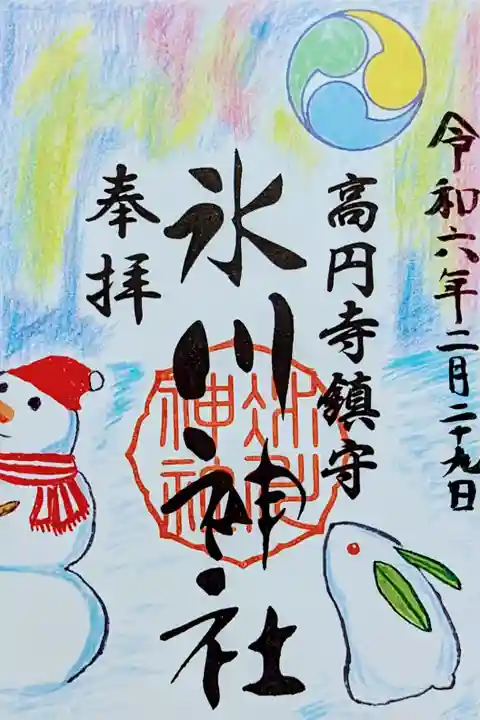 令和六年二月二十九日
高円寺鎮守
氷川神社
奉拝
氷川
神社